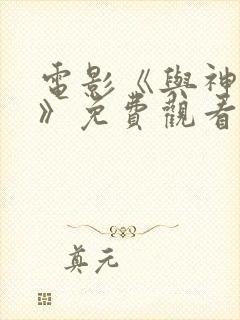 電影《與神
》免費觀看
真元